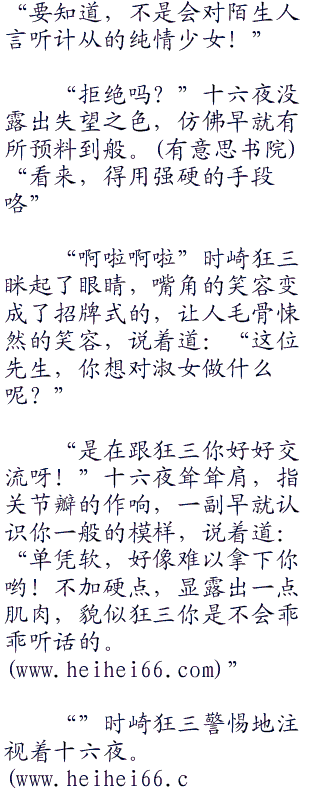 “要知道，不是会对陌生人
言听计从的纯情少女！”
“拒绝吗？”十六夜没
露出失望之色，仿佛早就有
所预料到般。(有意思书院)
“看来，得用强硬的手段
咯”
“啊啦啊啦”时崎狂三
眯起了眼睛，嘴角的笑容变
成了招牌式的，让人毛骨悚
然的笑容，说着道：“这位
先生，你想对淑女做什么
呢？”
“是在跟狂三你好好交
流呀！”十六夜耸耸肩，指
关节瓣的作响，一副早就认
识你一般的模样，说着道：
“单凭软，好像难以拿下你
哟！不加硬点，显露出一点
肌肉，貌似狂三你是不会乖
乖听话的。
(www.heihei66.com)”
“”时崎狂三警惕地注
视着十六夜。
(www.heihei66.c